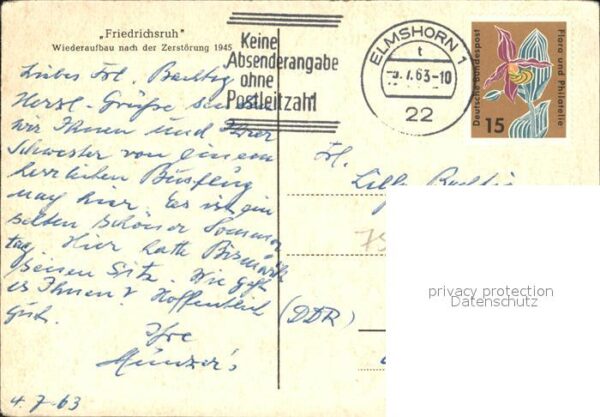 „Friedrichsruh"
Wiederaufbau nach der Zerstörung 1945
Keine
Absenderangabe
ohne
Postleitzahl
ELMSHORN 1
t
.7.63-10
22
Deutsche Bundespost
Flora und Philatelie
15
Liebes Frl.
Herzl. Grüße senden
wir Ihnen und Ihrer
Schwester von einem
herrlichen Ausflug
nach hier. Es ist ein
selten schöner Sommer
tag. Hier hatte Bismark
seinen Sitz. Wie geht
es Ihnen? Hoffentlich
gut.
Ihre
4.7.63
Frl.
(DDR)
privacy protection
Datenschutz